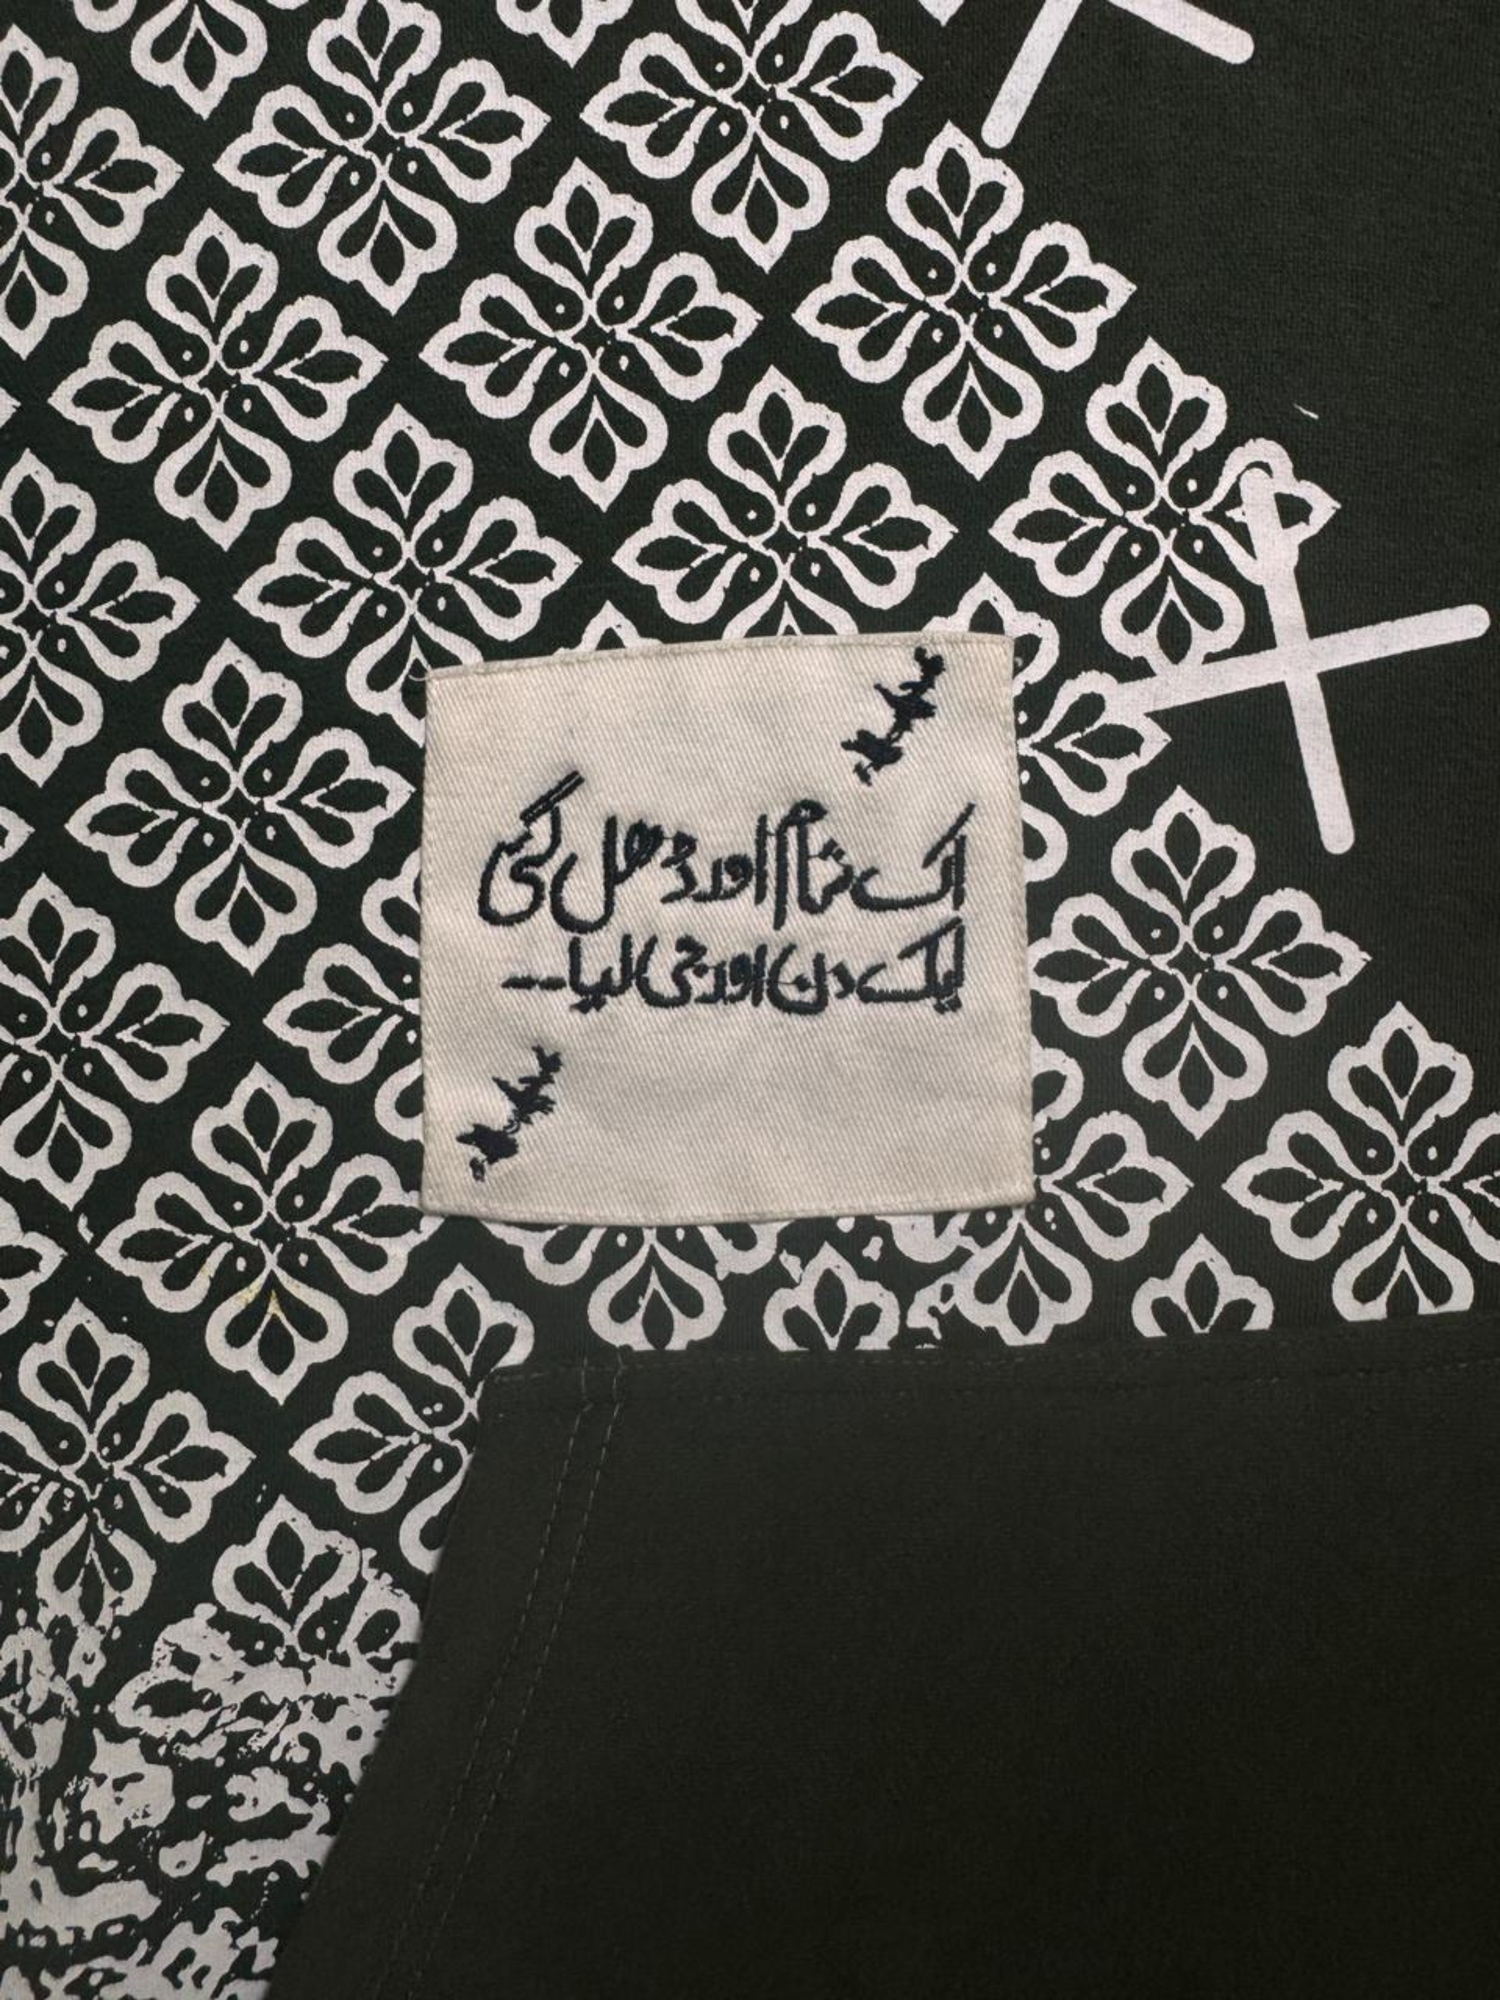 اک شام اور ڈھل گئی
ایک دن اور جی لیا۔۔